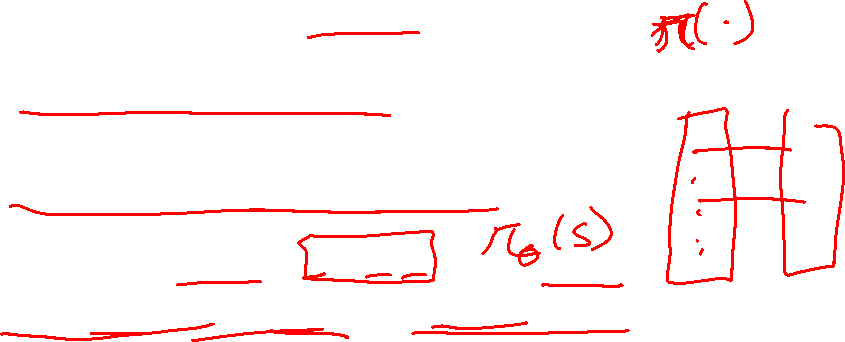 π(·)
π_θ(s)